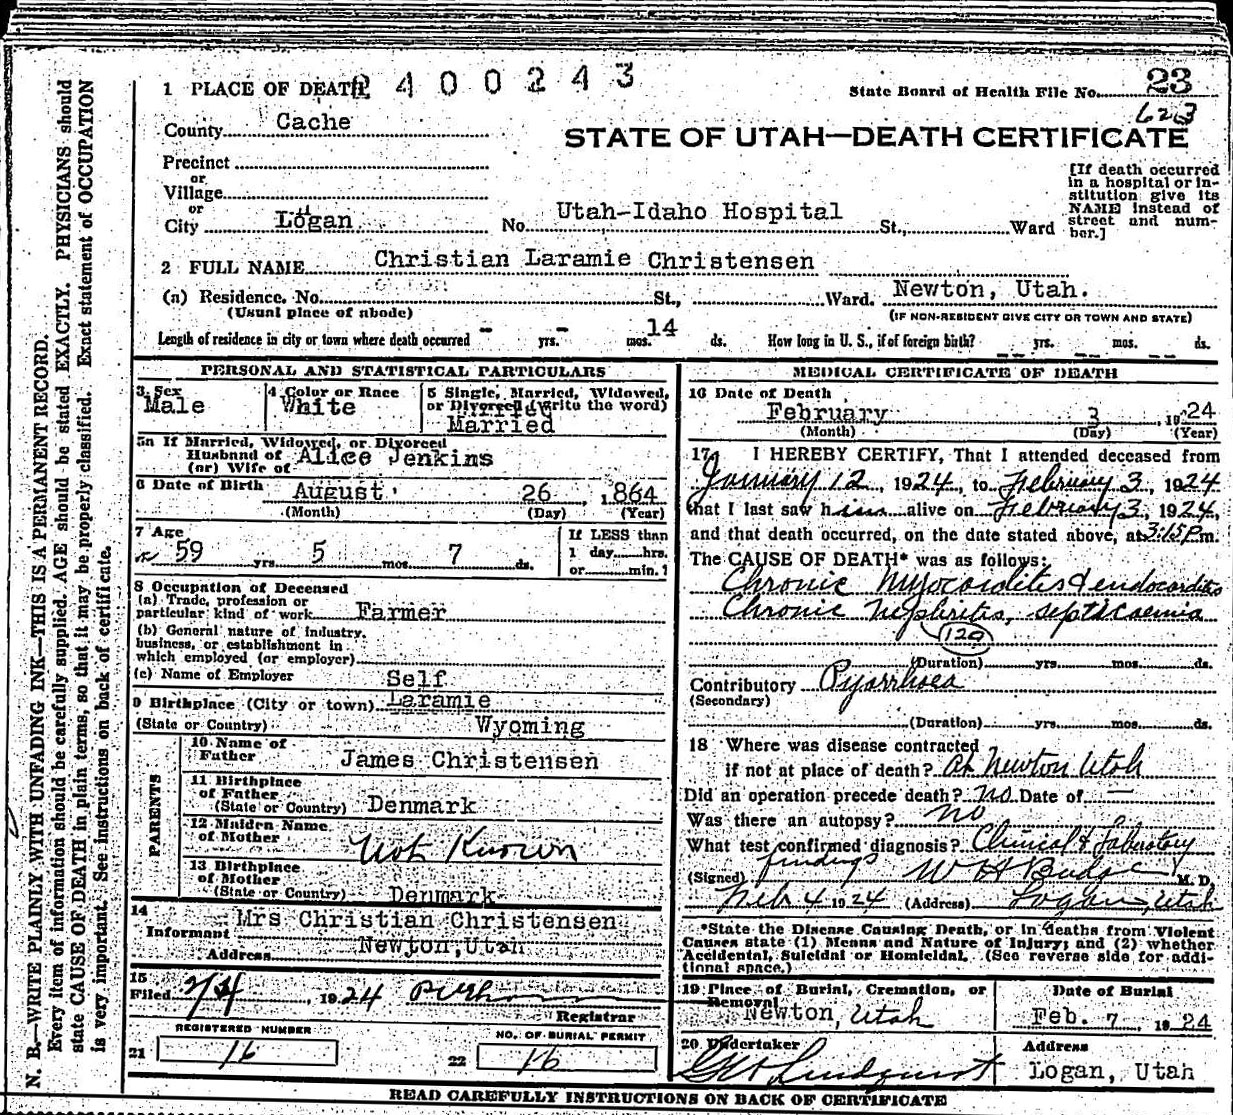 N. B.—WRITE PLAINLY WITH UNFADING INK—THIS IS A PERMANENT RECORD.
Every item of information should be carefully supplied. AGE should be stated EXACTLY. PHYSICIANS should
state CAUSE OF DEATH in plain terms, so that it may be properly classified. Exact statement of OCCUPATION
is very important. See instructions on back of certificate.
1 PLACE OF DEATH 2400243
State Board of Health File No. 23
623
County Cache
STATE OF UTAH—DEATH CERTIFICATE
Precinct
or
Village
or
City Logan
No. Utah-Idaho Hospital St., Ward
[If death occurred
in a hospital or in-
stitution give its
NAME instead of
street and num-
ber.]
2 FULL NAME Christian Laramie Christensen
(a) Residence. No. St., Ward. Newton, Utah.
(Usual place of abode)
(IF NON-RESIDENT GIVE CITY OR TOWN AND STATE)
Length of residence in city or town where death occurred - yrs. - mos. 14 ds. How long in U. S., if of foreign birth? -- yrs. -- mos. -- ds.
PERSONAL AND STATISTICAL PARTICULARS
3 Sex
Male
4 Color or Race
White
5 Single, Married, Widowed,
or Divorced (write the word)
Married
5a If Married, Widowed, or Divorced
Husband of
(or) Wife of Alice Jenkins
6 Date of Birth August 26, 1864
(Month) (Day) (Year)
7 Age
59 yrs. 5 mos. 7 ds.
If LESS than
1 day hrs.
or min.?
8 Occupation of Deceased
(a) Trade, profession or
particular kind of work Farmer
(b) General nature of industry,
business, or establishment in
which employed (or employer)
(c) Name of Employer Self
9 Birthplace (City or town) Laramie
(State or Country) Wyoming
PARENTS
10 Name of
Father James Christensen
11 Birthplace
of Father
(State or Country) Denmark
12 Maiden Name
of Mother Not Known
13 Birthplace
of Mother
(State or Country) Denmark
14
Informant Mrs Christian Christensen
Address Newton, Utah
15
Filed 2/4, 1924
Registrar
REGISTERED NUMBER
21 16
NO. OF BURIAL PERMIT
22 16
MEDICAL CERTIFICATE OF DEATH
16 Date of Death
February 3, 1924
(Month) (Day) (Year)
17 I HEREBY CERTIFY, That I attended deceased from
January 12, 1924, to February 3, 1924
that I last saw him alive on February 3, 1924,
and that death occurred, on the date stated above, at 3:15 P.m.
The CAUSE OF DEATH* was as follows:
Chronic Myocarditis & endocarditis
Chronic Nephritis, septicaemia
129
(Duration) yrs. mos. ds.
Contributory Pyorrhoea
(Secondary)
(Duration) yrs. mos. ds.
18 Where was disease contracted
if not at place of death? At Newton Utah
Did an operation precede death? No Date of —
Was there an autopsy? No
What test confirmed diagnosis? Clinical & Laboratory
findings
(Signed) W H Budge M. D.
Feb 4 1924 (Address) Logan, Utah
*State the Disease Causing Death, or in deaths from Violent
Causes state (1) Means and Nature of Injury; and (2) whether
Accidental, Suicidal or Homicidal. (See reverse side for addi-
tional space.)
19 Place of Burial, Cremation, or
Removal
Newton, Utah
Date of Burial
Feb. 7, 1924
20 Undertaker
Lindquist
Address
Logan, Utah
READ CAREFULLY INSTRUCTIONS ON BACK OF CERTIFICATE